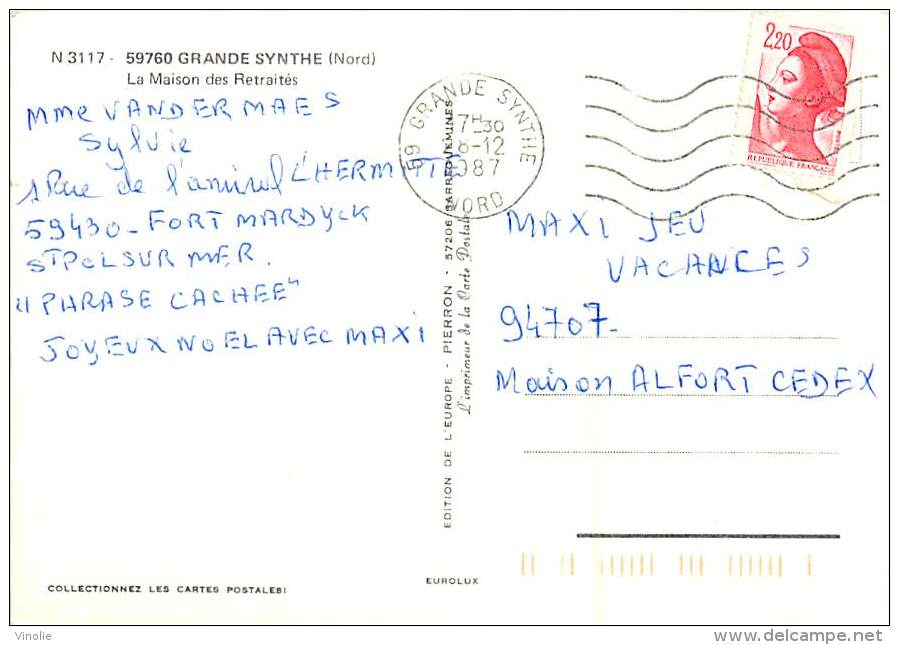 N 3117 - 59760 GRANDE SYNTHE (Nord)
La Maison des Retraités
Mme VANDERMAES
Sylvie
1 Rue de l'amiral L'HERMITTE
59430 - FORT MARDYCK
ST POL SUR MER.
"PHRASE CACHEE"
JOYEUX NOEL AVEC MAXI
COLLECTIONNEZ LES CARTES POSTALES!
EDITION DE L'EUROPE - PIERRON - 57206 SARREGUEMINES
L'imprimeur de la Carte Postale
EUROLUX
59 GRANDE SYNTHE
17H30
8-12
1987
NORD
2,20
REPUBLIQUE FRANÇAISE
MAXI JEU
VACANCES
94707-
Maison ALFORT CEDEX
Vinolie
www.delcampe.net